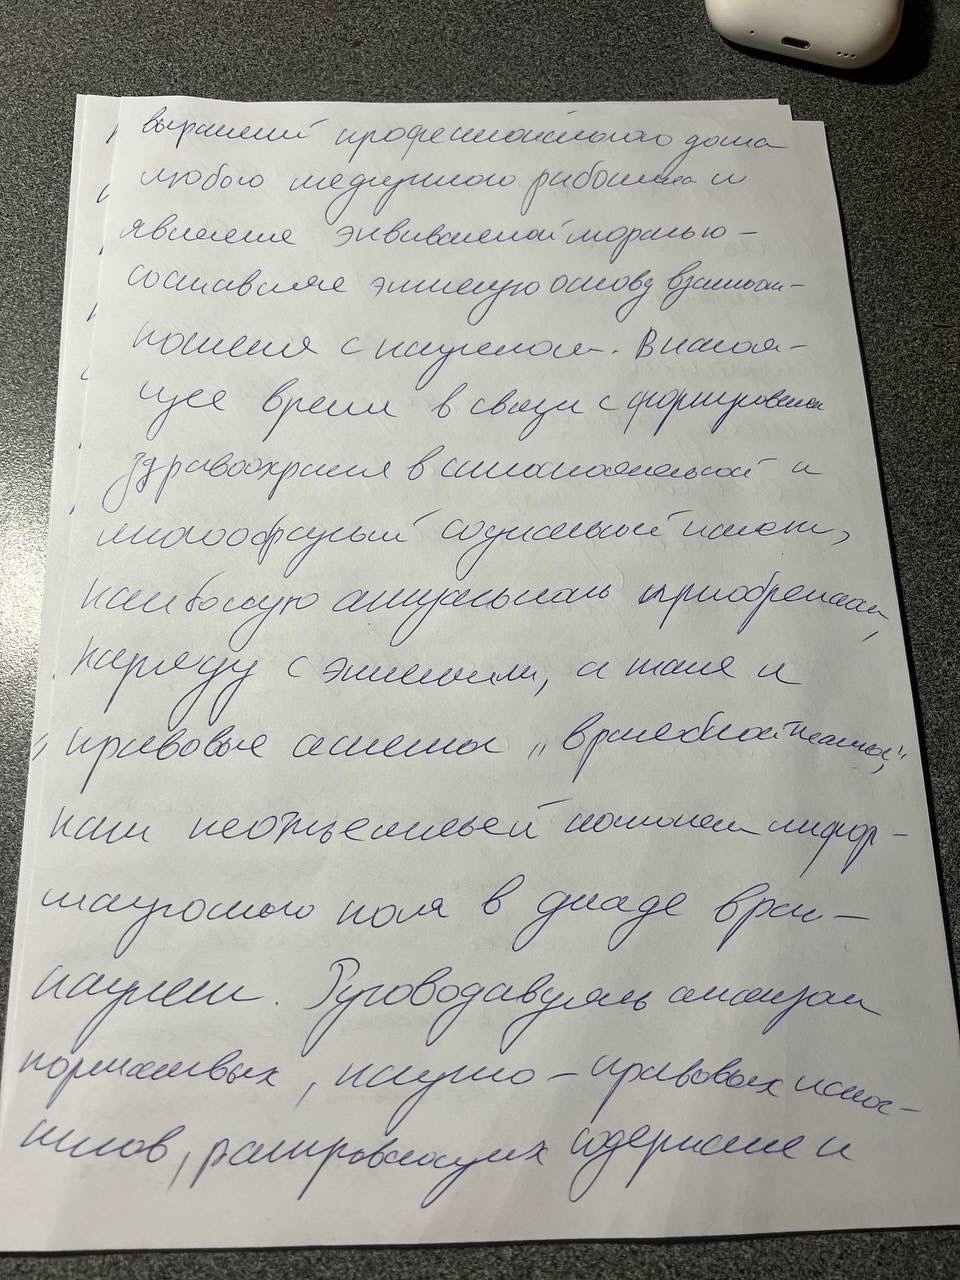 выражений профессионального долга
любого медицинского работника и
явление эквиваленой моралью –
составляе этическую основу взаимоот-
ношения с пациентом. В настоя-
щее время в связи с формировании
здравоохранения в самостоятельной и
многообразный социальный институт,
наибольшую актуальность приобретают,
наряду с этическими, а также и
правовые аспекты „врачебной тайны",
как неотъемлемый компонент инфор-
мационного поля в диаде врач –
пациент. Руководствуясь анализом
нормативных, научно – правовых источ-
ников, регулировающих содержание и